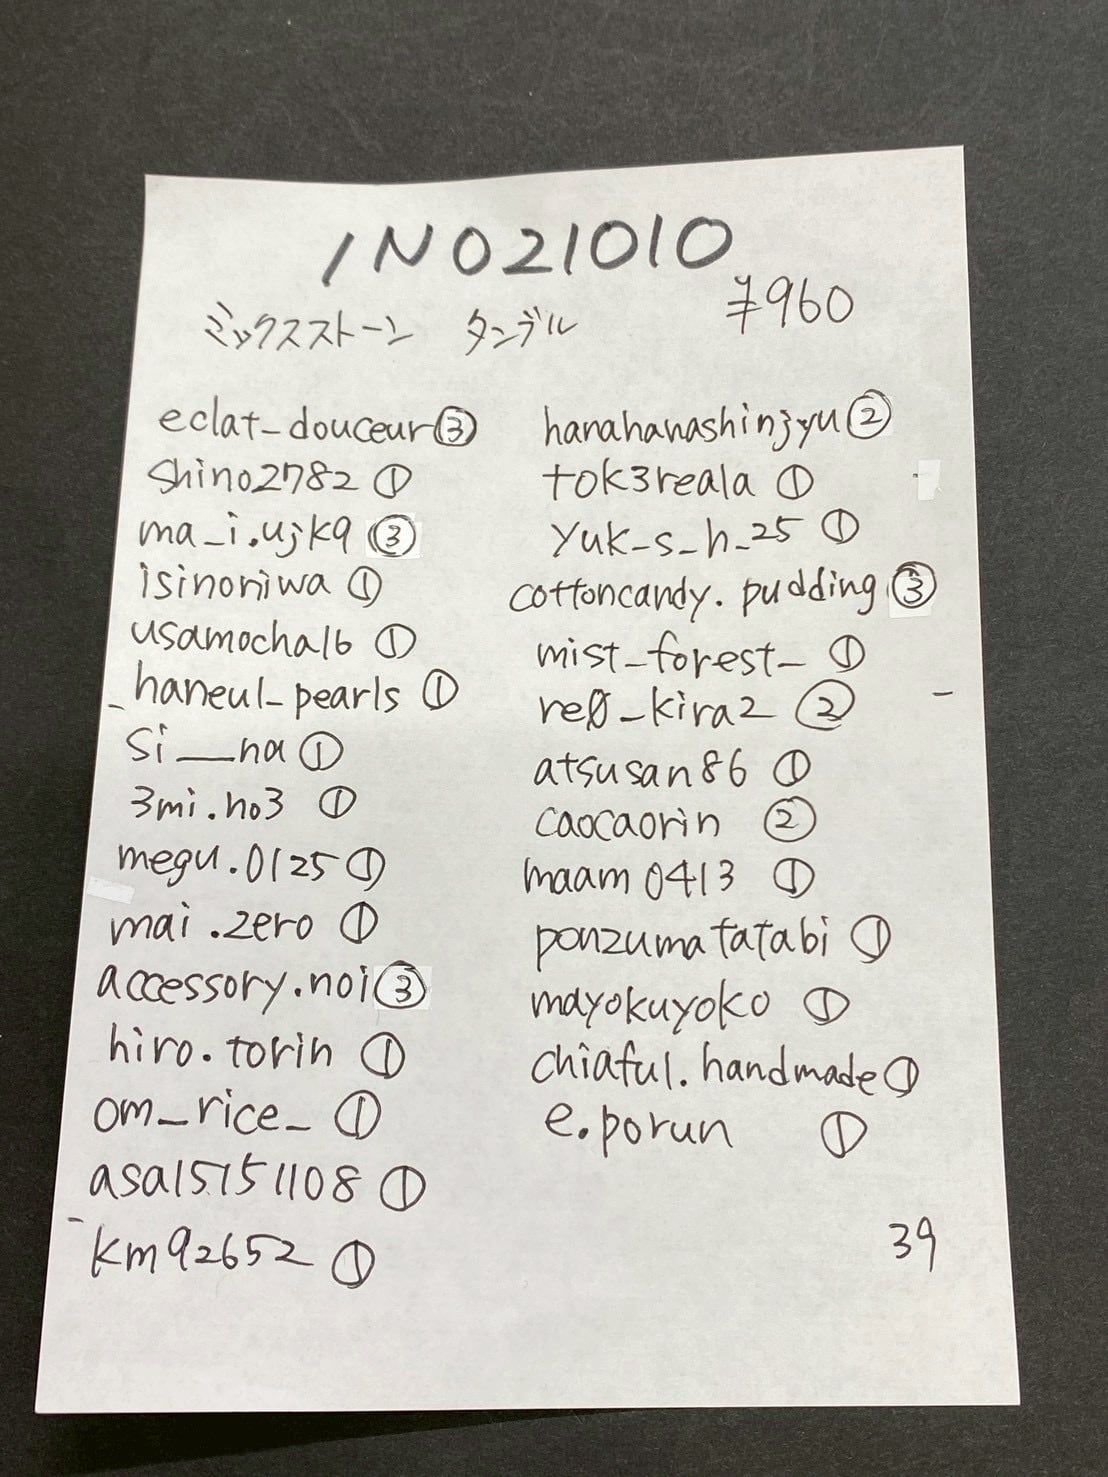 INO21010
¥960
ミックスストーン タンブル
eclat_douceur③
shino2782 ①
ma_i.ujk9 ③
isinoniwa ①
usamocha16 ①
haneul_pearls ①
si__na ①
3mi.no3 ①
megu.0125 ①
mai.zero ①
accessory.noi③
hiro.torin ①
om_rice_ ①
asa15151108 ①
km92652 ①
hanahanashinjyu②
tok3reala ①
yuk_s_h_25 ①
cottoncandy.pudding③
mist_forest_ ①
re0_kira2 ②
atsusan86 ①
caocaorin ②
maam0413 ①
ponzumatatabi ①
mayokuyoko ①
chiaful.handmade①
e.porun ①
39